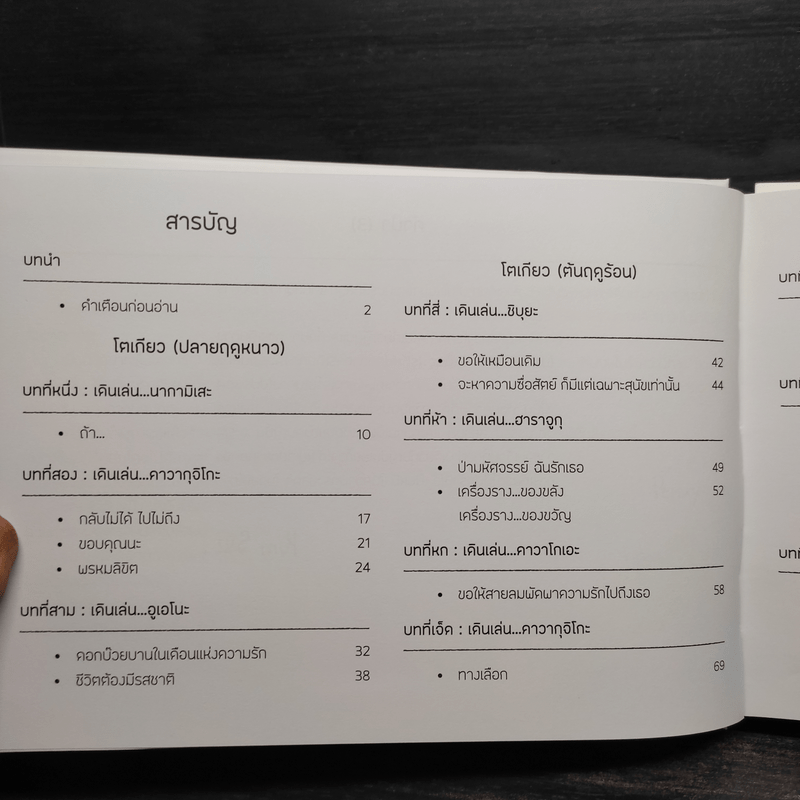 สารบัญ
บทนำ
• คำเตือนก่อนอ่าน 2
โตเกียว (ปลายฤดูหนาว)
บทที่หนึ่ง : เดินเล่น...นากามิเสะ
• ถ้า... 10
บทที่สอง : เดินเล่น...คาวากุจิโกะ
• กลับไม่ได้ ไปไม่ถึง 17
• ขอบคุณนะ 21
• พรหมลิขิต 24
บทที่สาม : เดินเล่น...อูเอโนะ
• ดอกบ๊วยบานในเดือนแห่งความรัก 32
• ชีวิตต้องมีรสชาติ 38
โตเกียว (ต้นฤดูร้อน)
บทที่สี่ : เดินเล่น...ชิบุยะ
• ขอให้เหมือนเดิม 42
• จะหาความซื่อสัตย์ ก็มีแต่เฉพาะสุนัขเท่านั้น 44
บทที่ห้า : เดินเล่น...ฮาราจูกุ
• ป่ามหัศจรรย์ ฉันรักเธอ 49
• เครื่องราง...ของขลัง 52
เครื่องราง...ของขวัญ
บทที่หก : เดินเล่น...คาวาโกเอะ
• ขอให้สายลมพัดพาความรักไปถึงเธอ 58
บทที่เจ็ด : เดินเล่น...คาวากุจิโกะ
• ทางเลือก 69